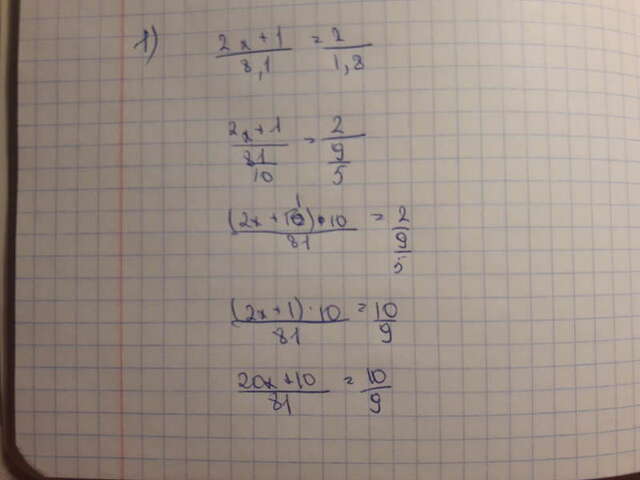 1) (2x+1)/8,1 = 2/1,8
(2x+1)/(81/10) = 2/(9/5)
((2x+1)·10)/81 = 2/(9/5)
((2x+1)·10)/81 = 10/9
(20x+10)/81 = 10/9